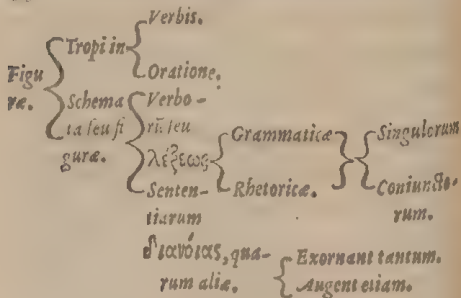 Verbis.
Tropi in
Oratione.
Figu
ræ.
Schema
ta seu fi
guræ.
Verbo-
rũ seu
λέξεως
Grammaticæ
Rhetoricæ.
Singulorum
Coniuncto-
rum.
Senten-
tiarum
διανοίας, qua-
rum aliæ.
Exornant tantum.
Augent etiam.